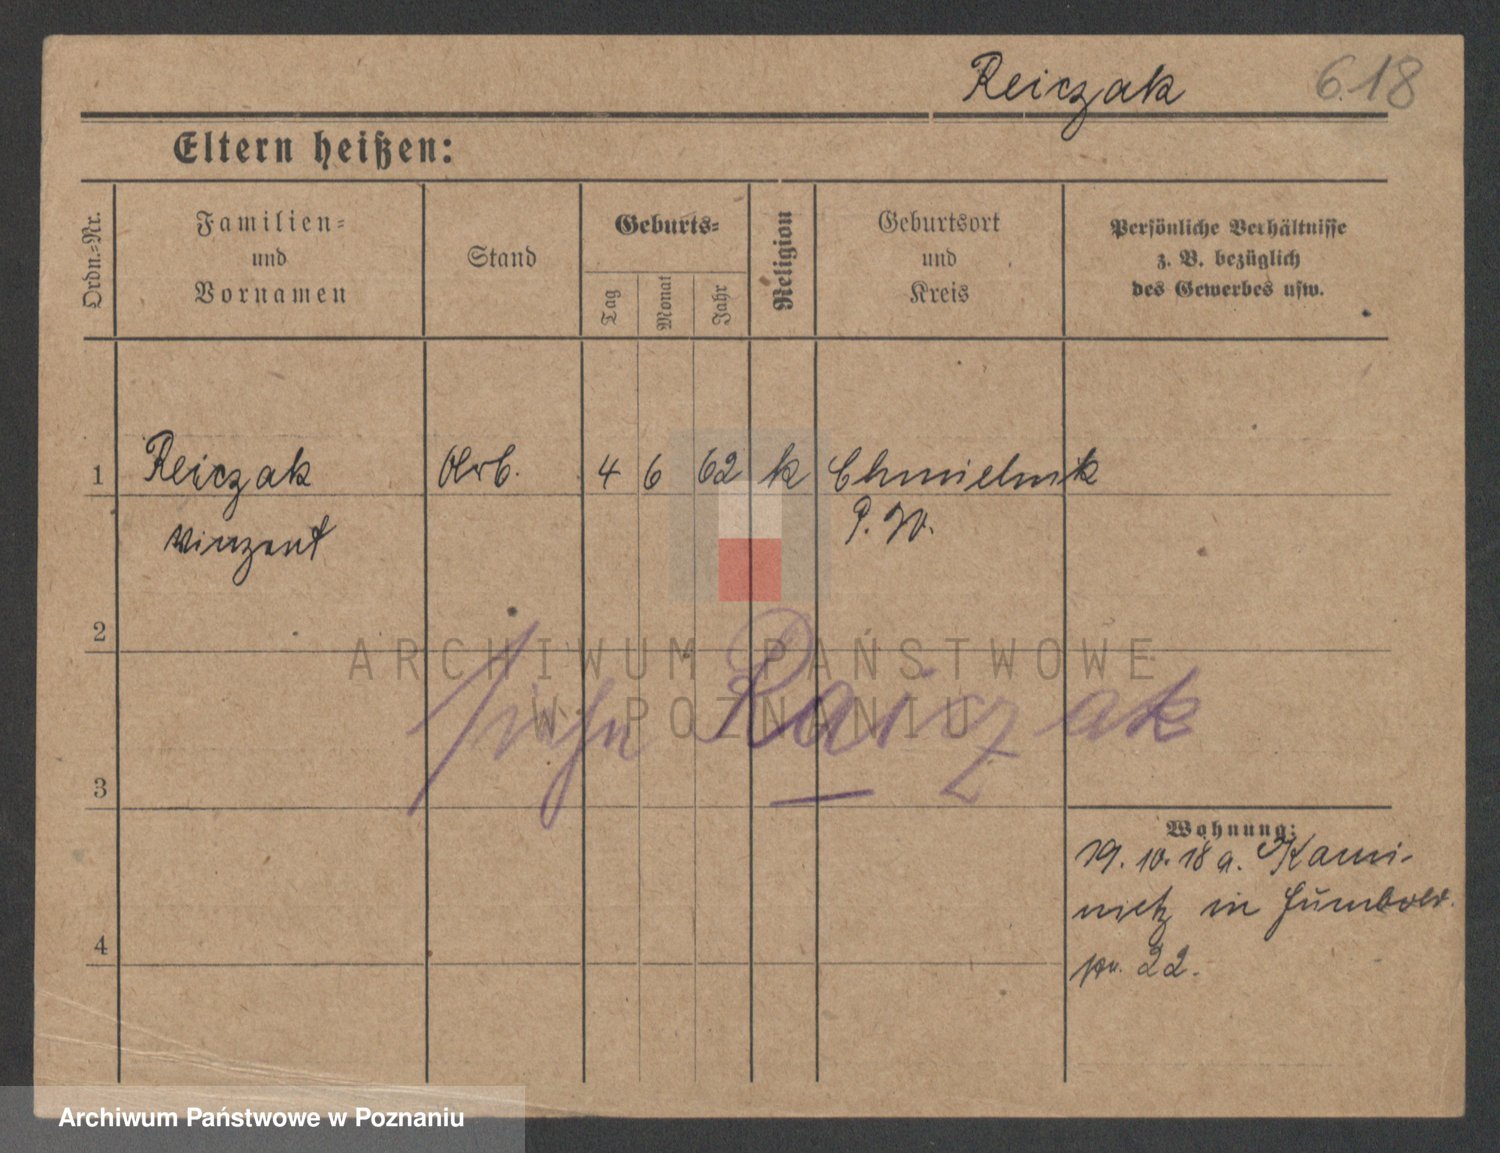 Reiczak 618
Eltern heißen:
Ordn.-Nr.
Familien-
und
Vornamen
Stand
Geburts-
Tag
Monat
Jahr
Religion
Geburtsort
und
Kreis
Persönliche Verhältnisse
z. B. bezüglich
des Gewerbes usw.
1 Reiczak Arb. 4 6 62 k Chmielnik
Vinzent P. W.
2
ARCHIWUM PAŃSTWOWE
W POZNANIU
siehe Raiczak
3
Wohnung:
19. 10. 18 a. Kami-
nietz in
22.
4
Archiwum Państwowe w Poznaniu